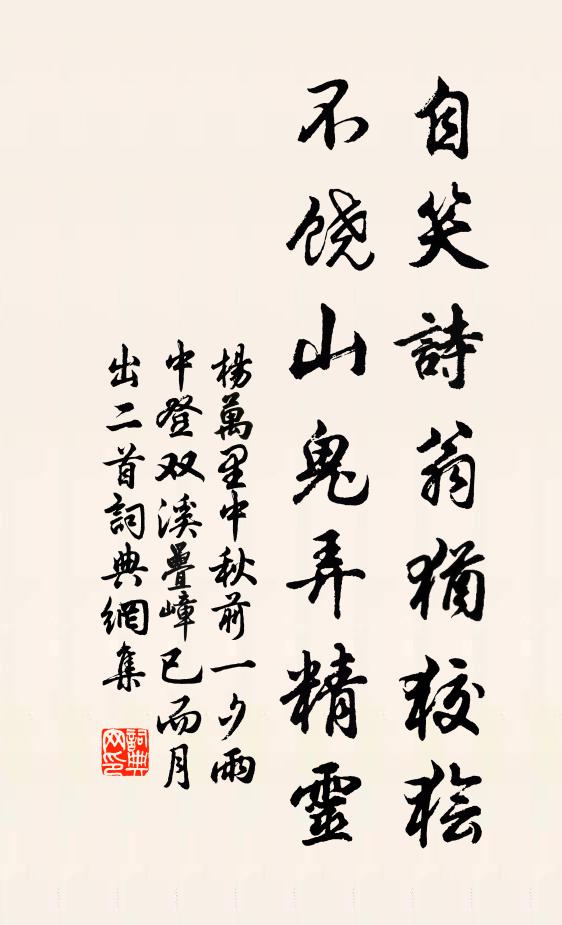 自笑詩翁猶狡獪
不饶山鬼弄精靈
楊萬里中秋前一夕雨
中登双溪疊嶂已而月
出二首詞典網集
詞典网印